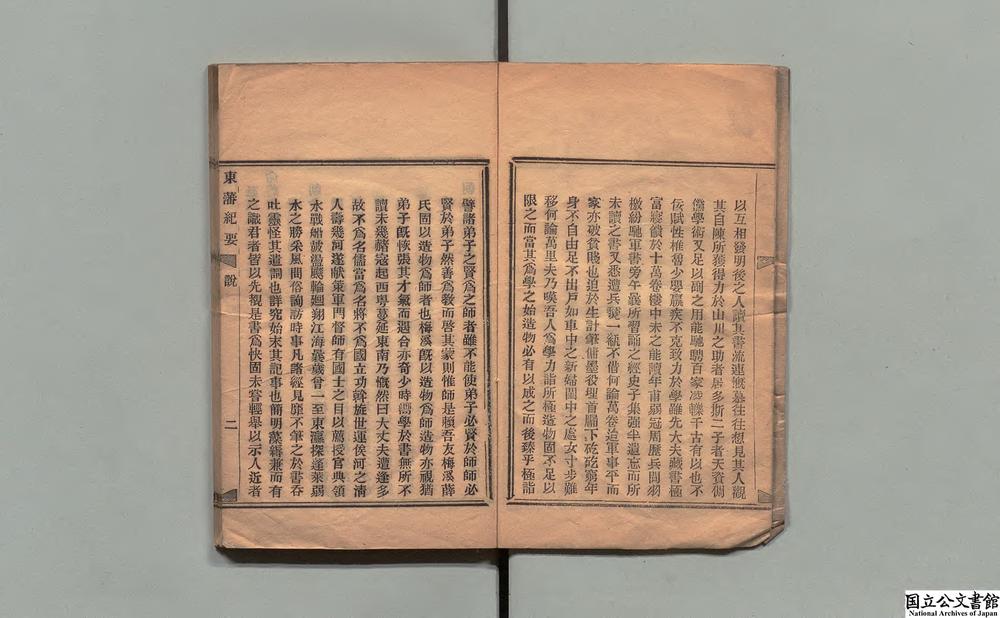 以互相發明後之人讀其書流連慨慕往往想見其人觀
其自陳所獲得力於山川之助者居多斯二子者天資倜
儻學術又足以副之用能馳騁百家凌轢千古有以也不
佞賦性椎魯少嬰羸疾不克致力於學雖先大夫藏書極
富寢饋於十萬卷樓中未之能讀年甫弱冠周歷兵間羽
檄紛馳軍書旁午曩所習誦之經史子集強半遺忘而所
未讀之書又悉遭兵燹一瓻不借何論萬卷迨軍事平而
家亦破貧賤也迫於生計筆傭墨役埋首牖下矻矻窮年
身不自由足不出戶如車中之新婦閨中之處女寸步難
移何論萬里夫乃嘆吾人爲學力詣所極造物固不足以
限之而當其爲學之始造物必有以成之而後臻乎極詣
譬諸弟子之賢爲之師者雖不能使弟子必賢於師師必
賢於弟子然善爲敎而啓其蒙則惟師是賴吾友梅溪薛
氏固以造物爲師者也梅溪旣以造物爲師造物亦視猶
弟子旣恢張其才氣而遇合亦奇少時學於書無所不
讀未幾赭寇起西粤蔓延東南乃慨然曰大丈夫遭逢多
故不爲名儒當爲名將不爲國立功斡旋世運俟河之清
人壽幾何遂献策軍門督師有國士之目以薦授官典領
水戰船皷盪颷輪廻翔江海曩歲曾一至東瀛探蓬萊弱
水之勝采風問俗諏訪時事凡諸經見靡不筆之於書吞
吐靈怪其遣詞也詳究始末其記事也簡明藻績兼而有
之識君者皆以先覩是書爲快固未嘗輕舉以示人近者
東藩紀要
說
二
国立公文書館
National Archives of Japan